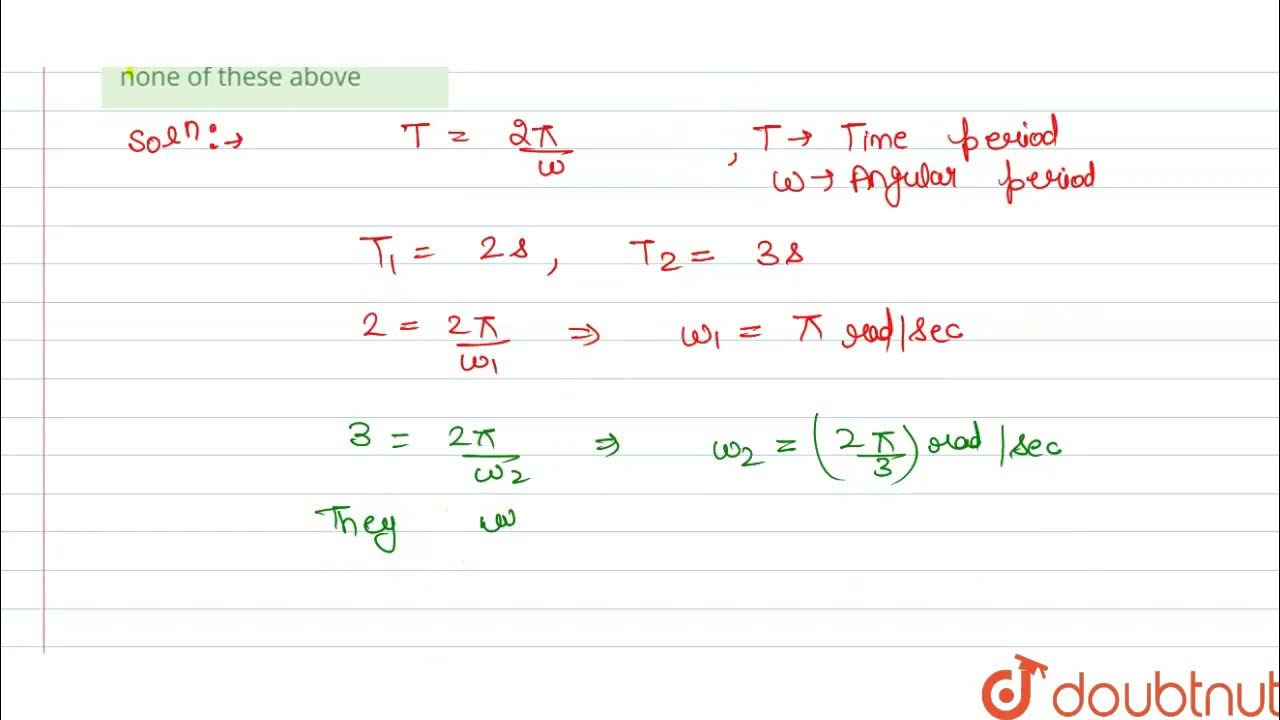 none of these above
Soln:→ T = 2π/ω , T → Time period
ω → Angular period
T₁ = 2s, T₂ = 3s
2 = 2π/ω₁ ⇒ ω₁ = π rad/sec
3 = 2π/ω₂ ⇒ ω₂ = (2π/3) rad/sec
They w
doubtnut